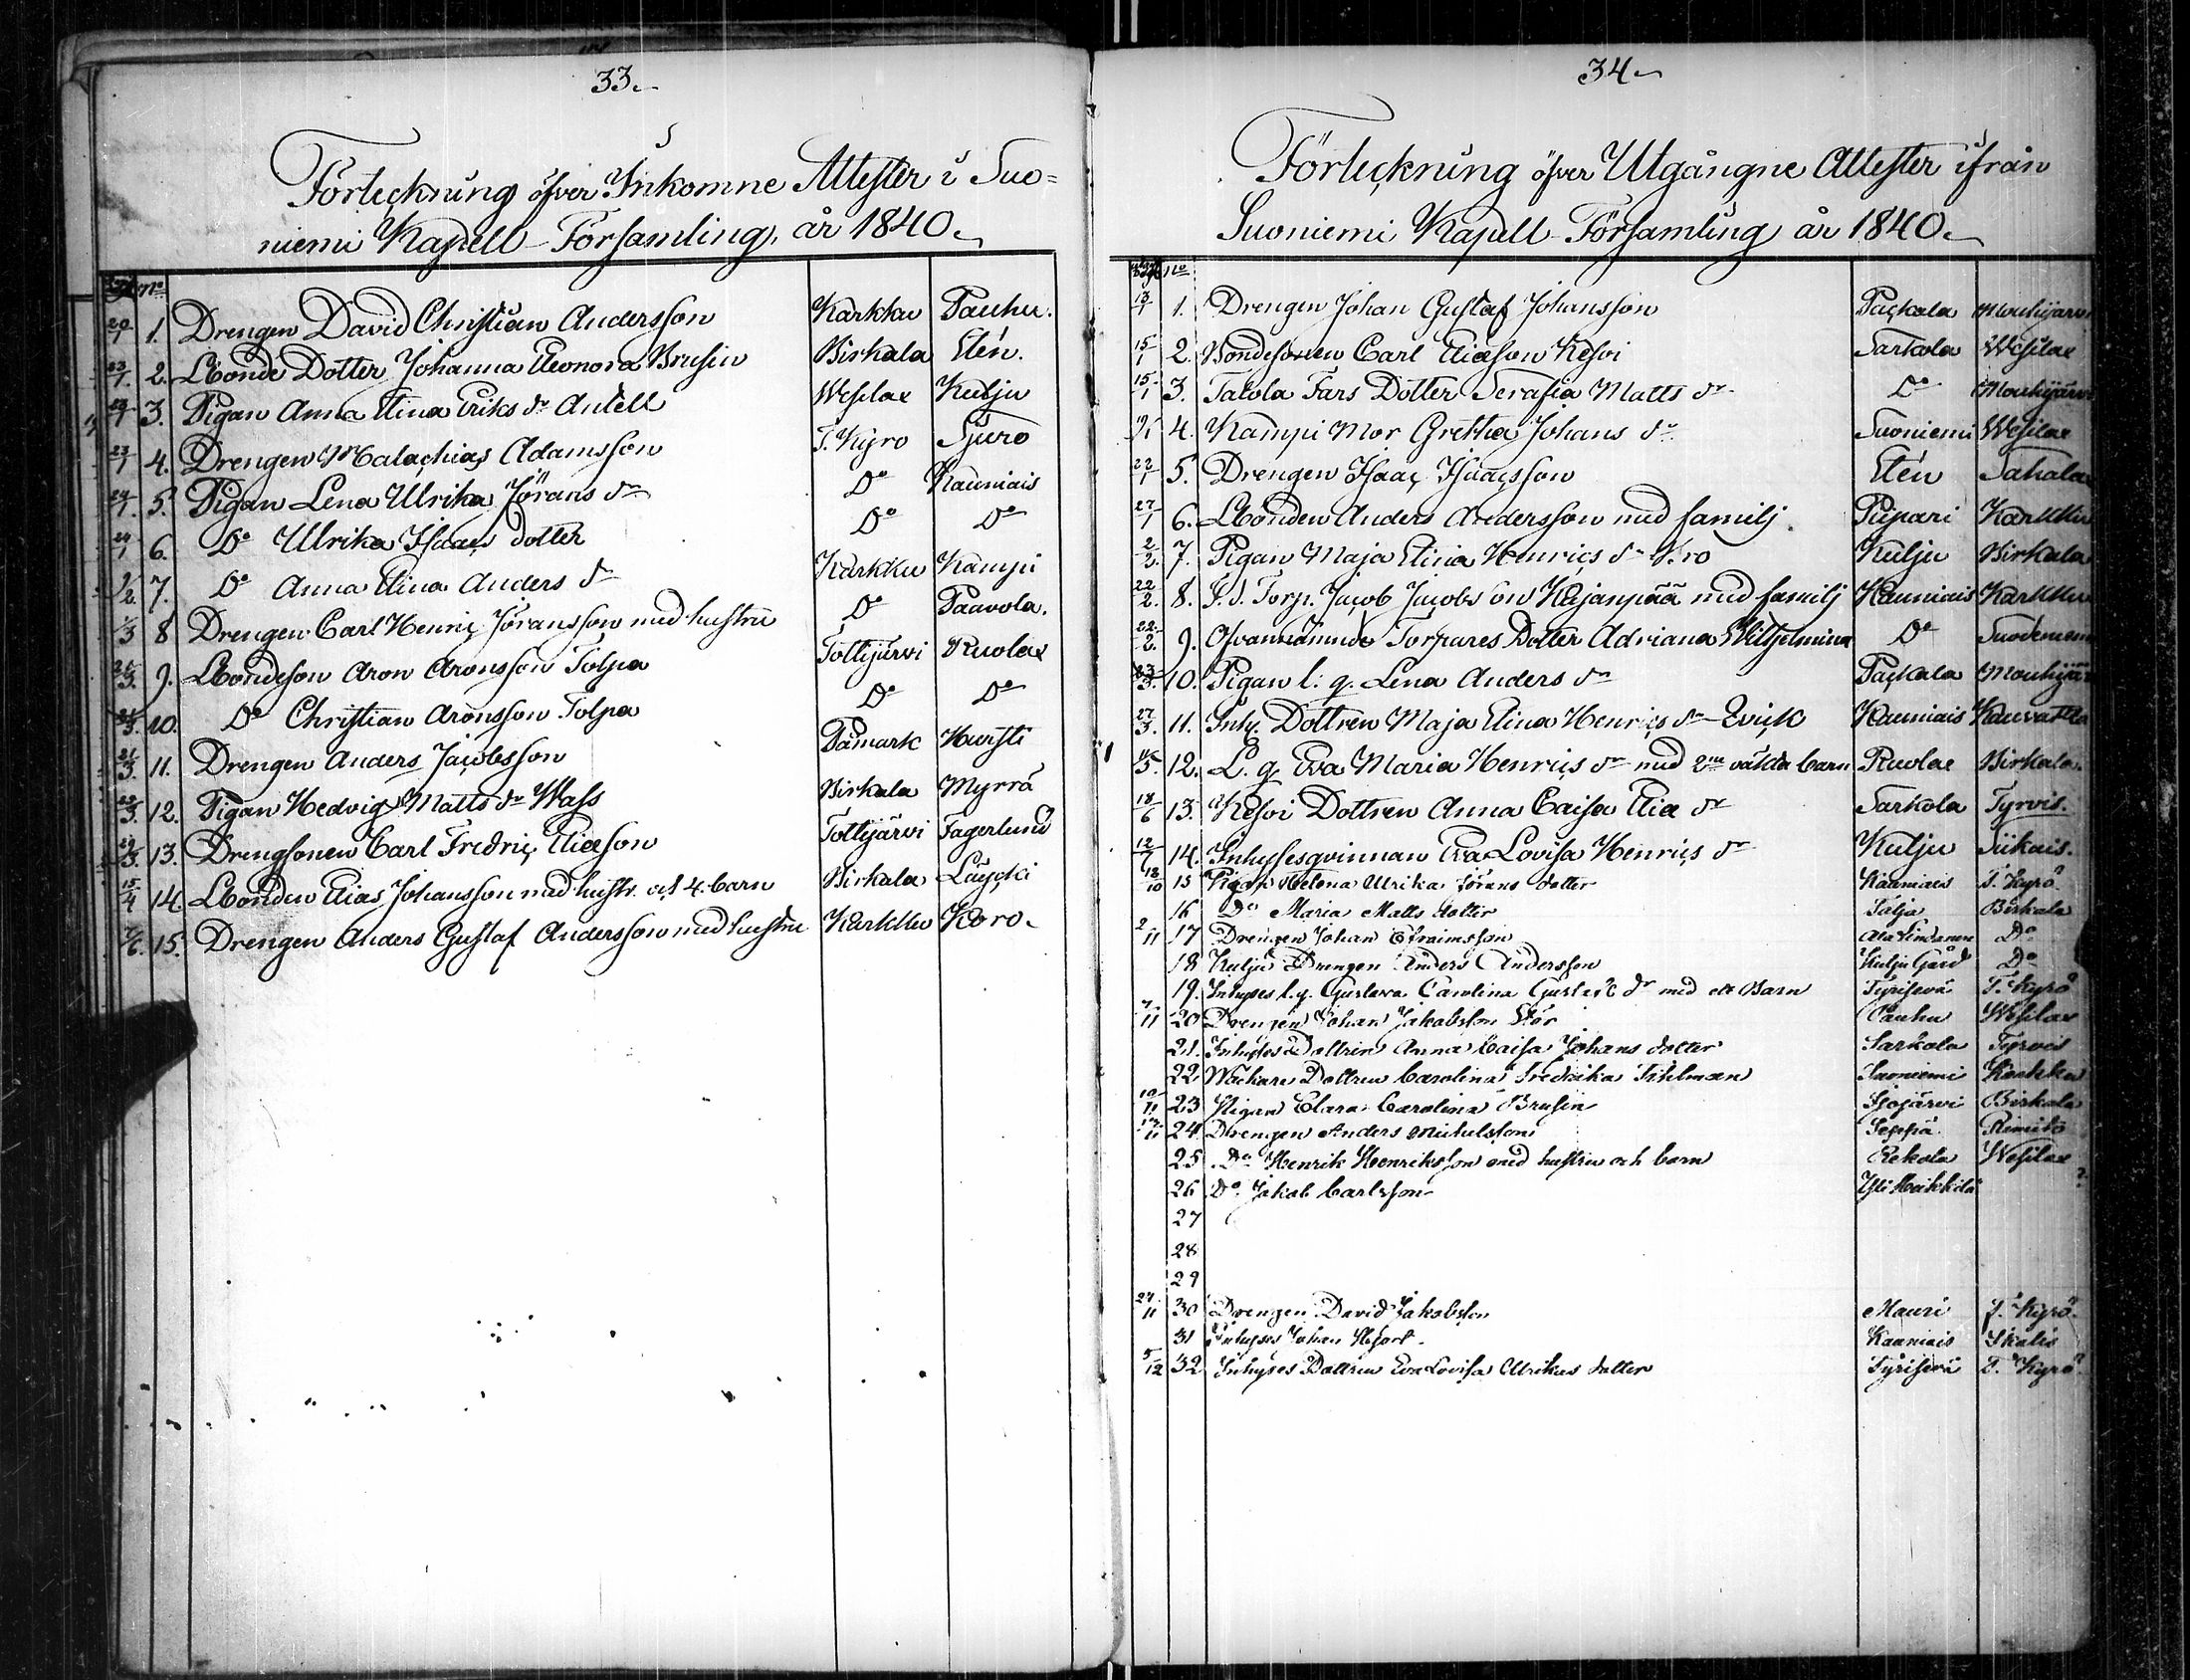 33.
Förteckning öfver Inkomne Attester i Suo=
niemi Kapell-Församling, år 1840.
No
20/1 1. Drengen David Christian Andersson Karkku Pauhu.
23/1. 2. Bonde Dotter Johanna Eleonora Brusin Birkala Elén.
3. Pigan Anna Elina Eriks dr Antell Wesilax Kulju
23/1 4. Drengen Malachias Adamsson T. Kyro Sjuro
24/1. 5. Pigan Lena Ulrika Jörans dr Do Kauniais
24/1 6. Do Ulrika Isaacs dotter Do Do
7. Do Anna Elina Anders dr Karkku Kampi
1/3 8 Drengen Carl Henric Jöransson med hustru Do Paavola.
21/3. 9. Bondeson Aron Aronsson Tolpa Tottijärvi Ruolax
21/3. 10. Do Christian Aronsson Tolpa Do Do
21/3. 11. Drengen Anders Jacobsson Påmark Hursti
22/3. 12. Pigan Hedvig Matts dr Wass Birkala Myrrä
29/3. 13. Drengsonen Carl Fredric Eliæson Tottijärvi Fagerlund
15/4 14. Bonden Elias Johansson med hustr. och 4. barn Birkala
7/6. 15. Drengen Anders Gustaf Andersson med hustru Karkku Koro.
34
Förteckning öfver Utgångne Attester ifrån
Suoniemi Kapell-Församling år 1840.
No
13/1 1. Drengen Johan Gustaf Johansson Packala Mouhijärvi
15/1 2. Bondesonen Carl Eliæson Kesvi Sarkola Wesilax
15/1 3. Talola Fars Dotter Serafia Matts dr Do Mouhijärvi
4. Kampi Mor Gretha Johans dr Suoniemi Wesilax
22/1 5. Drengen Isaac Isaacsson Elén Sahala
27/1 6. Bonden Anders Andersson med familj. Piipari Karkku
2/2. 7. Pigan Maja Elina Henrics dr Kulju Birkala
22/2. 8. F.d. Torp. Jacob Jacobsson Kajanpää med familj Kauniais Karkku
22/2. 9. Ofvannämnde Torpares Dotter Adriana Wilhelmina Do Suodeniemi
23/3. 10. Pigan l: q. Lena Anders dr Packala Mouhijär
27/3. 11. Inh. Dottren Maja Elina Henrics dr Kauniais Kauvatsa
12. L. q. Eva Maria Henrics dr med 2ne oäkta barn Ruolax Birkala.
18/6 13. Kesvi Dottren Anna Caisa Eliæ dr Sarkola Tyrvis.
12/7 14. Inhysesqvinnan Eva Lovisa Henrics dr Kulju Siikais.
18/10 15 Pigan Helena Ulrika Jörans dotter Kauniais T. Kyrö
16 Do Maria Matts dotter Salja Birkala
2/11 17 Drengen Johan Efraimsson Do
18 Kulju Drengen Anders Andersson Kulju Gård Do
19. Inhyses l.q. Gustava Carolina Gustafs dr med ett Barn T. Kyrö
7/11 20 Drengen Johan Jakobsson Stör Pauhu Wesilax
21. Inhyses Dottren Anna Caisa Johans dotter Sarkola Tyrvis
22 Wäckare Dottren Carolina Fredrika Sihlman Suoniemi Karkku
10/11 23 Pigan Clara Carolina Brusin Birkala
24 Drengen Anders Michelsson Seppä
25 Do Henrik Henriksson med hustru och barn Rekola Wesilax
26 Do Jakob Carlsson Yli Heikkilä ?
27
28
29
24/11 30 Drengen David Jakobsson Mauri T. Kyrö
31 Inhyses Johan Kauniais Ikalis
5/12 32 Inhyses Dottren Eva Lovisa Ulrikas dotter T. Kyrö